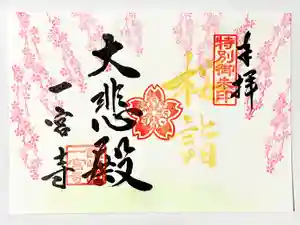 奉拝
特別御朱印
桜詣
大悲殿
一宮寺